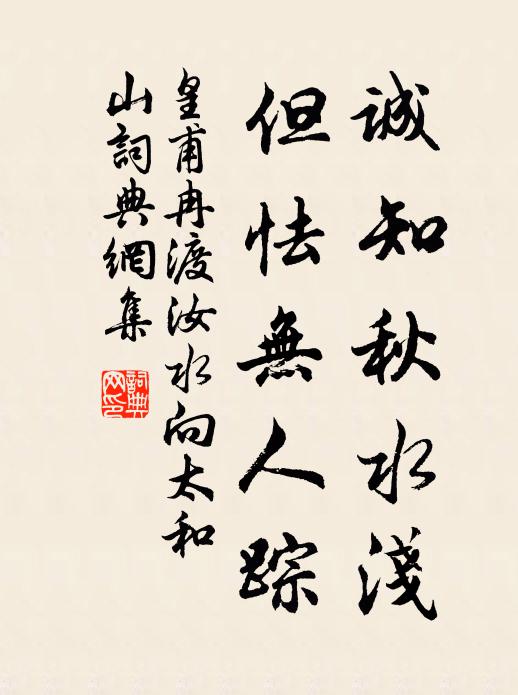 誠知秋水淺
但怯無人踪
皇甫冉渡汝水向太和
山詞典網集
詞典
网印